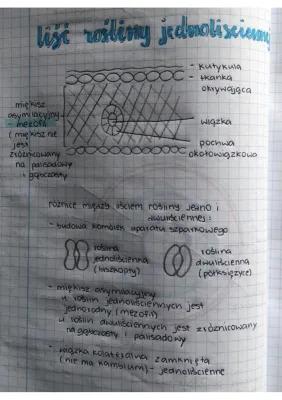 liść rośliny jednoliściennej
- kutykula
- tkanka
okrywająca
miękisz
asymilacyjny
- mezofil
(miękisz nie
jest
zróżnicowany
na palisadowy
i gąbczasty)
wiązka
pochwa
okołowiązkowa
różnice między liściem rośliny jedno i
dwuliściennej:
- budowa komórek aparatu szparkowego
roślina
jednoliścienna
(hiszkopty)
roślina
dwuliścienna
(półksiężyce)
- miękisz asymilacyjny
u roślin jednoliściennych jest
jednorodny (mezofil)
u roślin dwuliściennych jest zróżnicowany
na gąbczasty i palisadowy
- wiązka kolateralna zamknięta
(nie ma kambium) - jednoliścienne